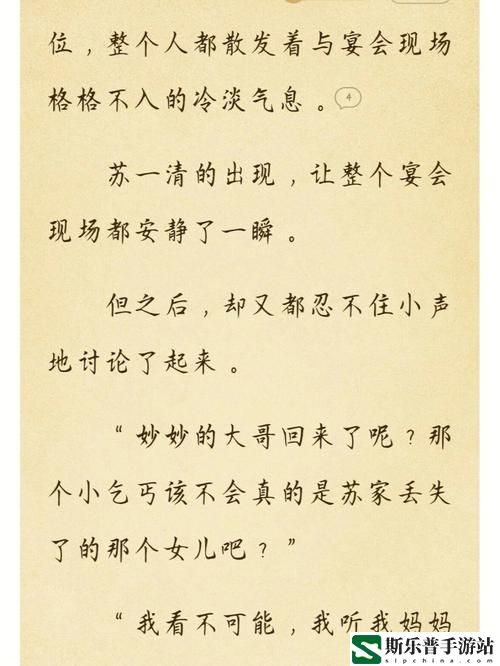 位，整个人都散发着与宴会现场
格格不入的冷淡气息。 4
苏一清的出现，让整个宴会
现场都安静了一瞬。
但之后，却又都忍不住小声
地讨论了起来。
“妙妙的大哥回来了呢？那
个小乞丐该不会真的是苏家丢失
了的那个女儿吧？”
“我看不可能，我听我妈妈
斯乐普手游站
slpchina.com